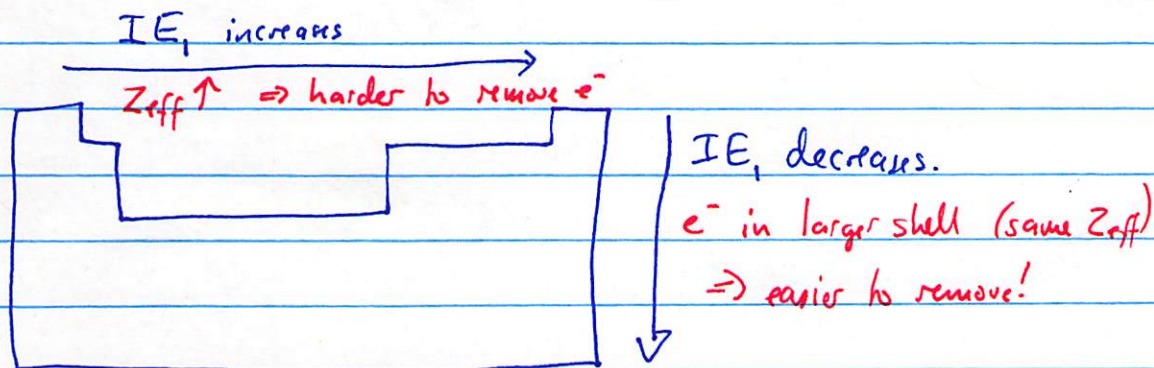 IE₁ increases
Zeff↑ ⇒ harder to remove e⁻
IE₁ decreases.
e⁻ in larger shell (same Zeff)
⇒ easier to remove!